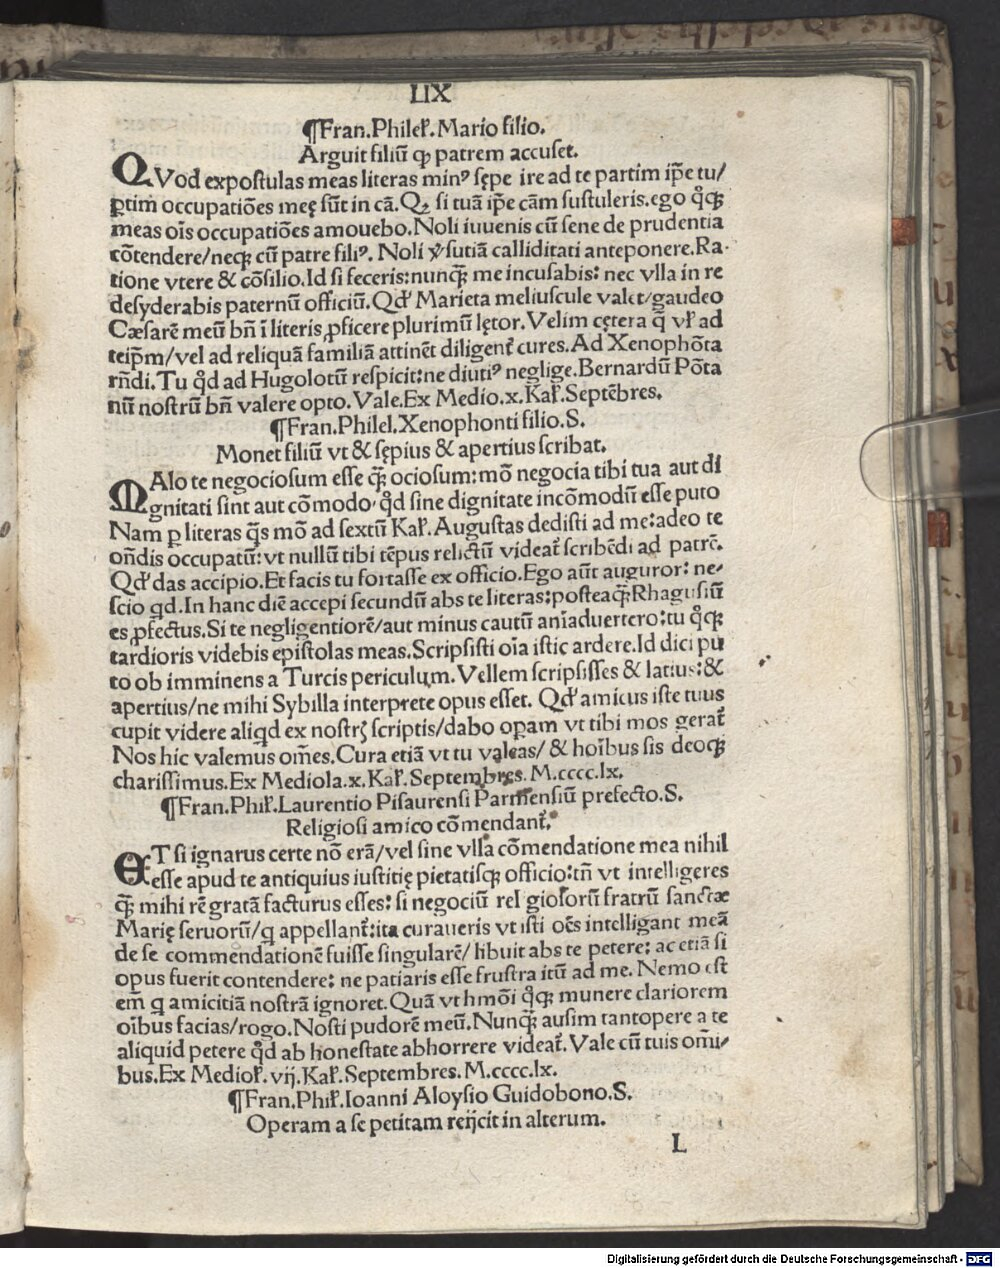 LIX
¶Fran.Philel̵.Mario filio.
Arguit filiū ꝙ patrem accuſet.
QVod expoſtulas meas literas minꝰ ſępe ire ad te partim ip̄e tu/
ꝑtim occupatiōes meę ſūt in cā.Qꝫ ſi tuā ip̄e cām ſuſtuleris.ego q̊qꝫ
meas oīs occupatiōes amouebo.Noli iuuenis cū ſene de prudentia
cōtendere/neqꝫ cū patre filiꝰ. Noli v̓ſutiā calliditati anteponere.Ra-
tione vtere & cōſilio.Id ſi feceris:nunqꝫ̄ me incuſabis: nec vlla in re
deſyderabis paternū officiū.Qd̓ Marieta meliuſcule valet/gaudeo
Cæſarē meū bn̄ ī literis ꝓficere plurimū lętor.Velim cętera q̄ vl̵ ad
teip̄m/vel ad reliquā familiā attinēt diligent̄ cures.Ad Xenophōta
rn̄di.Tu q̊d ad Hugolotū reſpicit:ne diutiꝰ neglige.Bernardū Pōta
nū noſtrū bn̄ valere opto.Vale.Ex Medio.x.Kal̵.Septēbres.
¶Fran.Philel.Xenophonti filio.S.
Monet filiū vt & ſępius & apertius ſcribat.
MAlo te negocioſum eſſe qꝫ̄ ocioſum:mō negocia tibi tua aut di
gnitati ſint aut cōmodo.q̊d ſine dignitate incōmodū eſſe puto
Nam ꝑ literas q̄s mō ad ſextū Kal̵.Auguſtas dediſti ad me:adeo te
oñdis occupatū:vt nullū tibi tēpus relictū videat̄ ſcribēdi ad patrē.
Qd̓ das accipio.Et facis tu fortaſſe ex officio.Ego aūt auguror: ne-
ſcio qd.In hanc diē accepi ſecundū abs te literas:poſteaqꝫ̄ Rhaguſiū
es ꝓfectus.Si te negligentiorē/aut minus cautū aniaduertero:tu q̊qꝫ
tardioris videbis epiſtolas meas.Scripſiſti oīa iſtic ardere.Id dici pu
to ob imminens a Turcis periculum.Vellem ſcripſiſſes & latius:&
apertius/ne mihi Sybilla interprete opus eſſet. Qd̓ amicus iſte tuus
cupit videre aliqd ex noſtrꝝ ſcriptis/dabo oꝑam vt tibi mos gerat̄
Nos hic valemus om̄es.Cura etiā vt tu valeas/ & hoībus ſis deoqꝫ
chariſſimus.Ex Mediola.x.Kal̵.Septembres.M.cccc.lx.
¶Fran.Phil̵.Laurentio Piſaurenſi Parmenſiū prefecto.S.
Religioſi amico cōmendant̄.
ET ſi ignarus certe nō erā/vel ſine vlla cōmendatione mea nihil
eſſe apud te antiquius iuſtitię pietatiſqꝫ officio:tn̄ vt intelligeres
qꝫ̄ mihi rē gratā facturus eſſes: ſi negociū religioſorū fratrū ſanctæ
Marię ſeruorū/q̄ appellant̄:ita curaueris vt iſti oēs intelligant meā
de ſe commendationē fuiſſe ſingularē/ libuit abs te petere: ac etiā ſi
opus fuerit contendere: ne patiaris eſſe fruſtra itū ad me. Nemo eſt
em̄ q amicitiā noſtrā ignoret.Quā vt hmōi q̊qꝫ munere clariorem
oībus facias/rogo.Noſti pudorē meū.Nunqꝫ̄ auſim tantopere a te
aliquid petere q̊d ab honeſtate abhorrere videat̄.Vale cū tuis om̄i-
bus.Ex Mediol̵.vij.Kal̵.Septembres.M.cccc.lx.
¶Fran.Phil̵.Ioanni Aloyſio Guidobono.S.
Operam a ſe petitam reijcit in alterum.
L
Digitalisierung gefördert durch die Deutsche Forschungsgemeinschaft - DFG